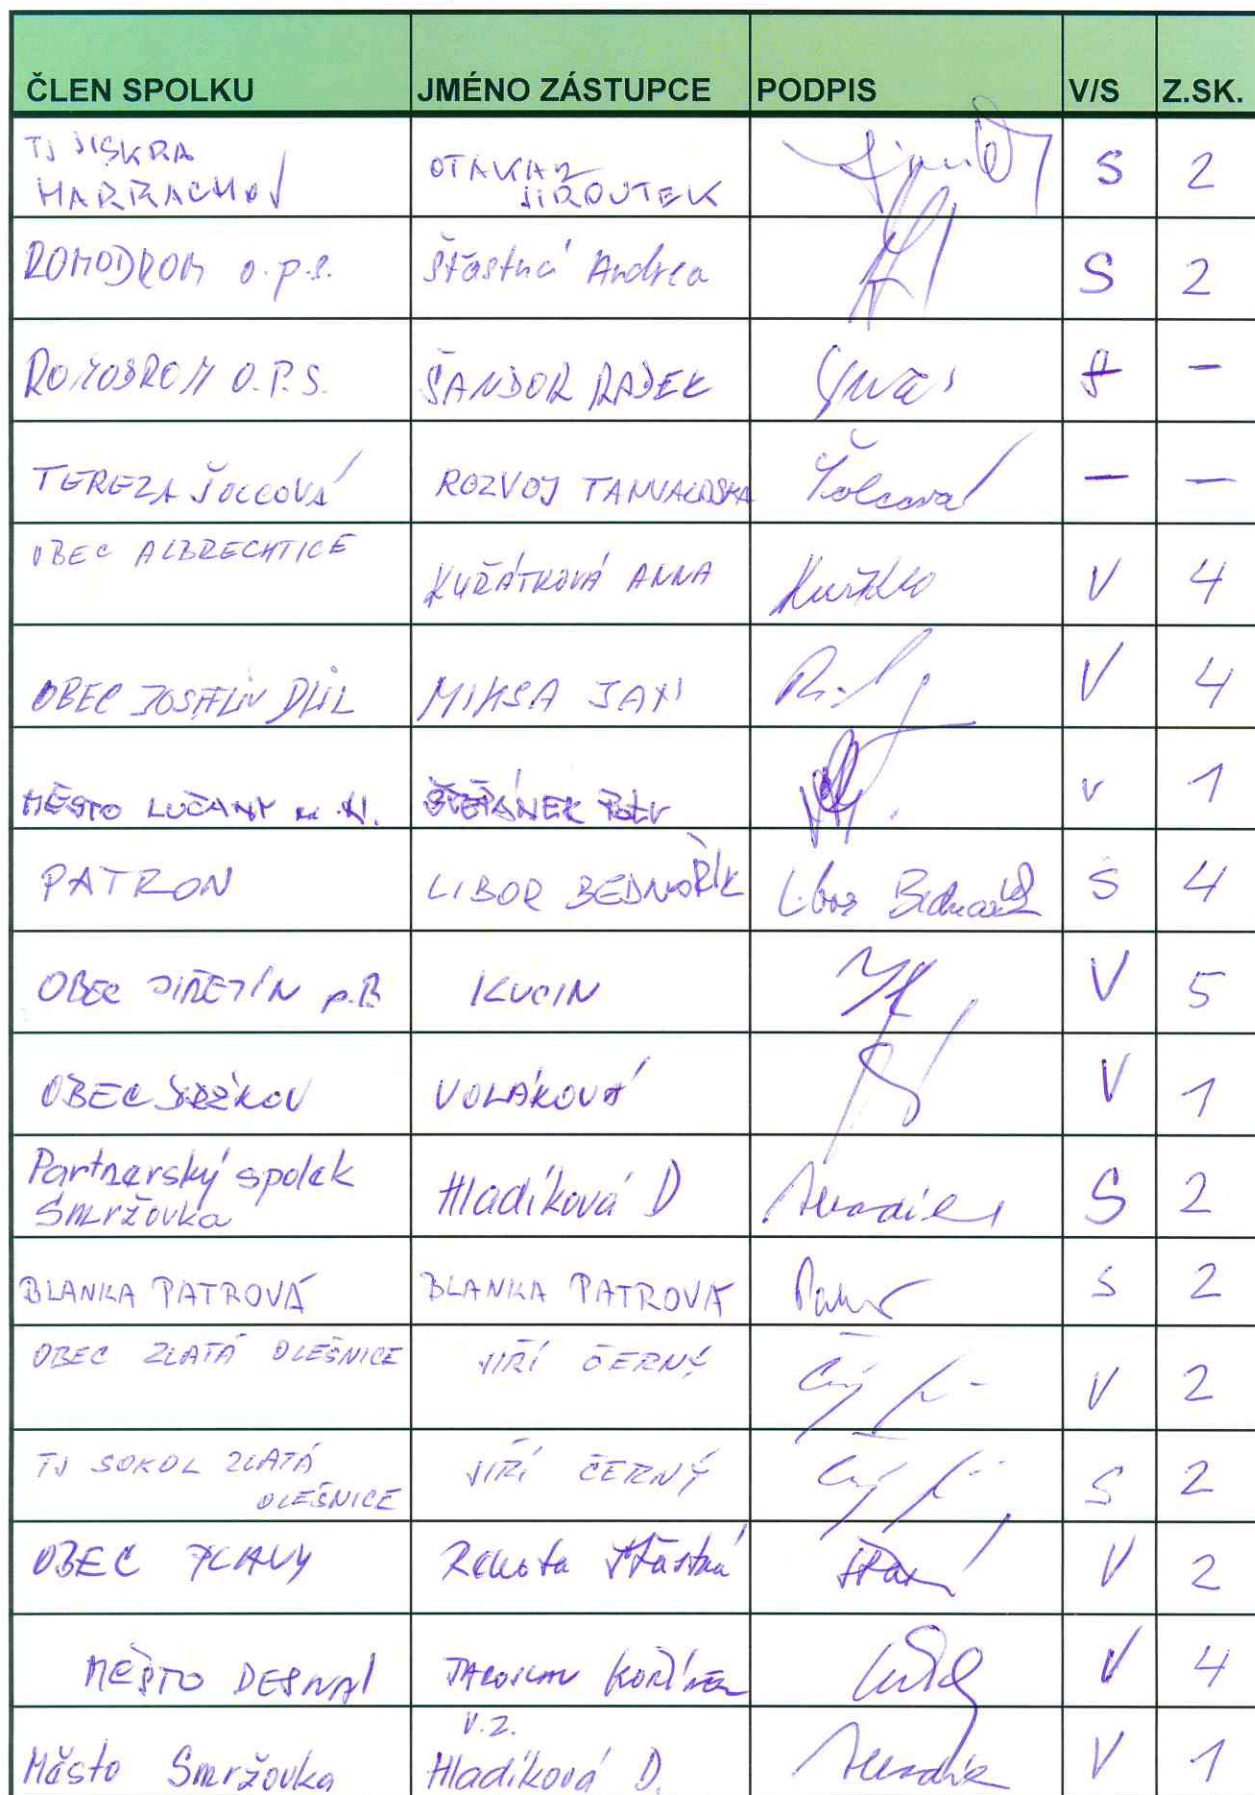 ČLEN SPOLKU JMÉNO ZÁSTUPCE PODPIS V/S Z.SK.
TJ JISKRA HARRACHOV OTAKAR JIROUTEK S 2
ROMODROM o.p.s. Šťastná Andrea S 2
ROMODROM O.P.S. ŠANDOR RADEK –
TEREZA ŠOLCOVÁ ROZVOJ TANVALDSKA Šolcová – –
OBEC ALBRECHTICE KUŘÁTKOVÁ ANNA V 4
OBEC JOSEFŮV DŮL MIKSA JAN V 4
MĚSTO LUČANY n. N. ŠTEFÁNEK V 1
PATRON LIBOR BEDNAŘÍK Libor Bednařík S 4
OBEC JIŘETÍN p.B KUCIN V 5
OBEC DRŽKOV VOLÁKOVÁ V 1
Partnerský spolek Smržovka Hladíková D S 2
BLANKA PATROVÁ BLANKA PATROVÁ S 2
OBEC ZLATÁ OLEŠNICE JIŘÍ ČERNÝ V 2
TJ SOKOL ZLATÁ OLEŠNICE JIŘÍ ČERNÝ S 2
OBEC PLAVY Renata Šťastná V 2
MĚSTO DESNÁ JAROSLAV KOŘÍNEK V 4
Město Smržovka V.Z. Hladíková D. V 1